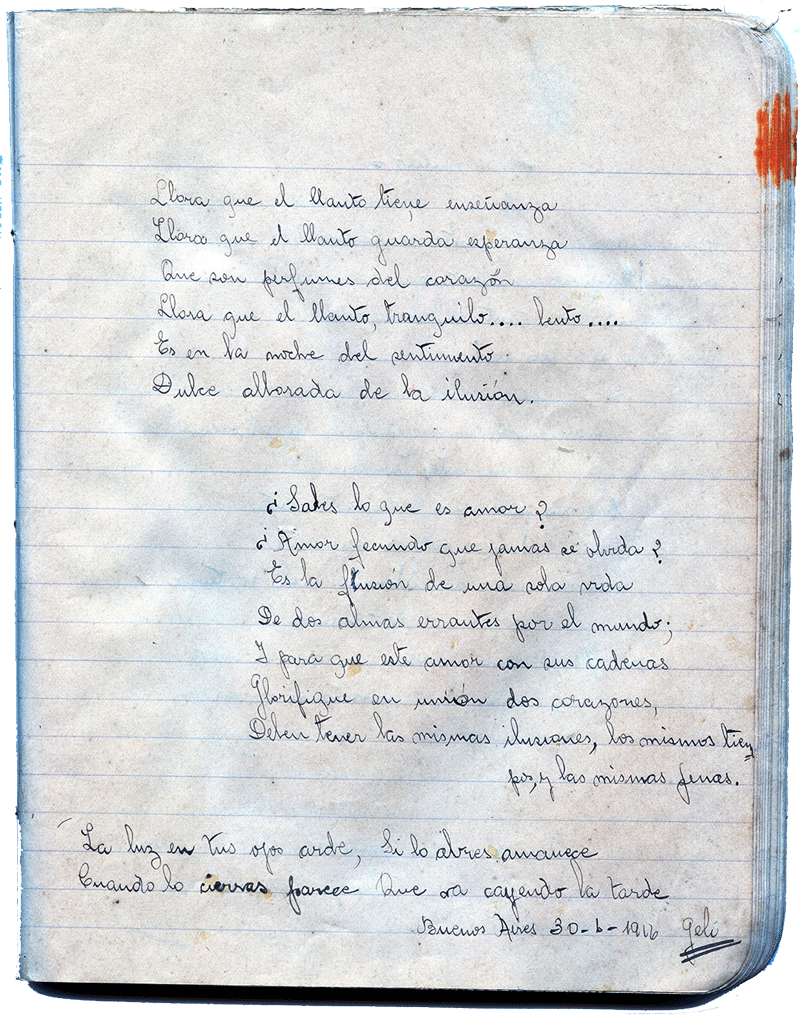 Llora que el llanto tiene enseñanza
Llora que el llanto guarda esperanza
Que son perfumes del corazón
Llora que el llanto, tranquilo.... lento....
Es en la noche del sentimento
Dulce alborada de la ilusión.
¿Sabes lo que es amor?
¿Amor fecundo que jamas se olvida?
Es la fusión de una sola vida
De dos almas errantes por el mundo;
Y para que este amor con sus cadenas
Glorifique en unión dos corazones,
Deben tener las mismas ilusiones, los mismos tiem
pos, y las mismas penas.
La luz en tus ojos arde, Si lo abres amanece
Cuando lo cierras parece Que va cayendo la tarde
Buenos Aires 30-6-1916 Geli